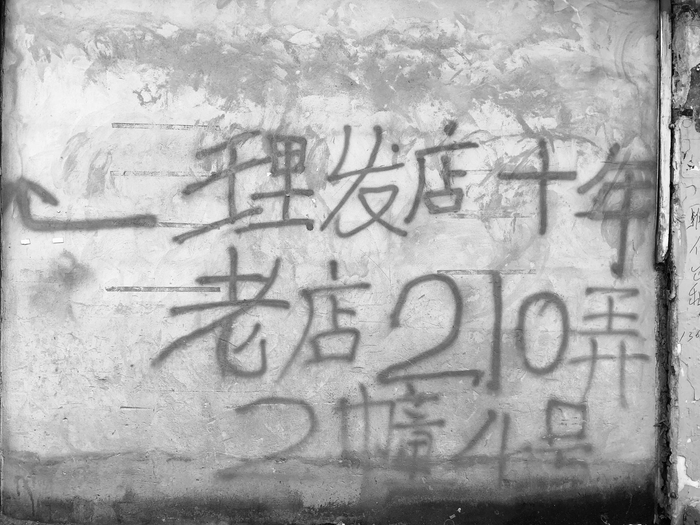 理发店十年
老店210弄
2幢4号